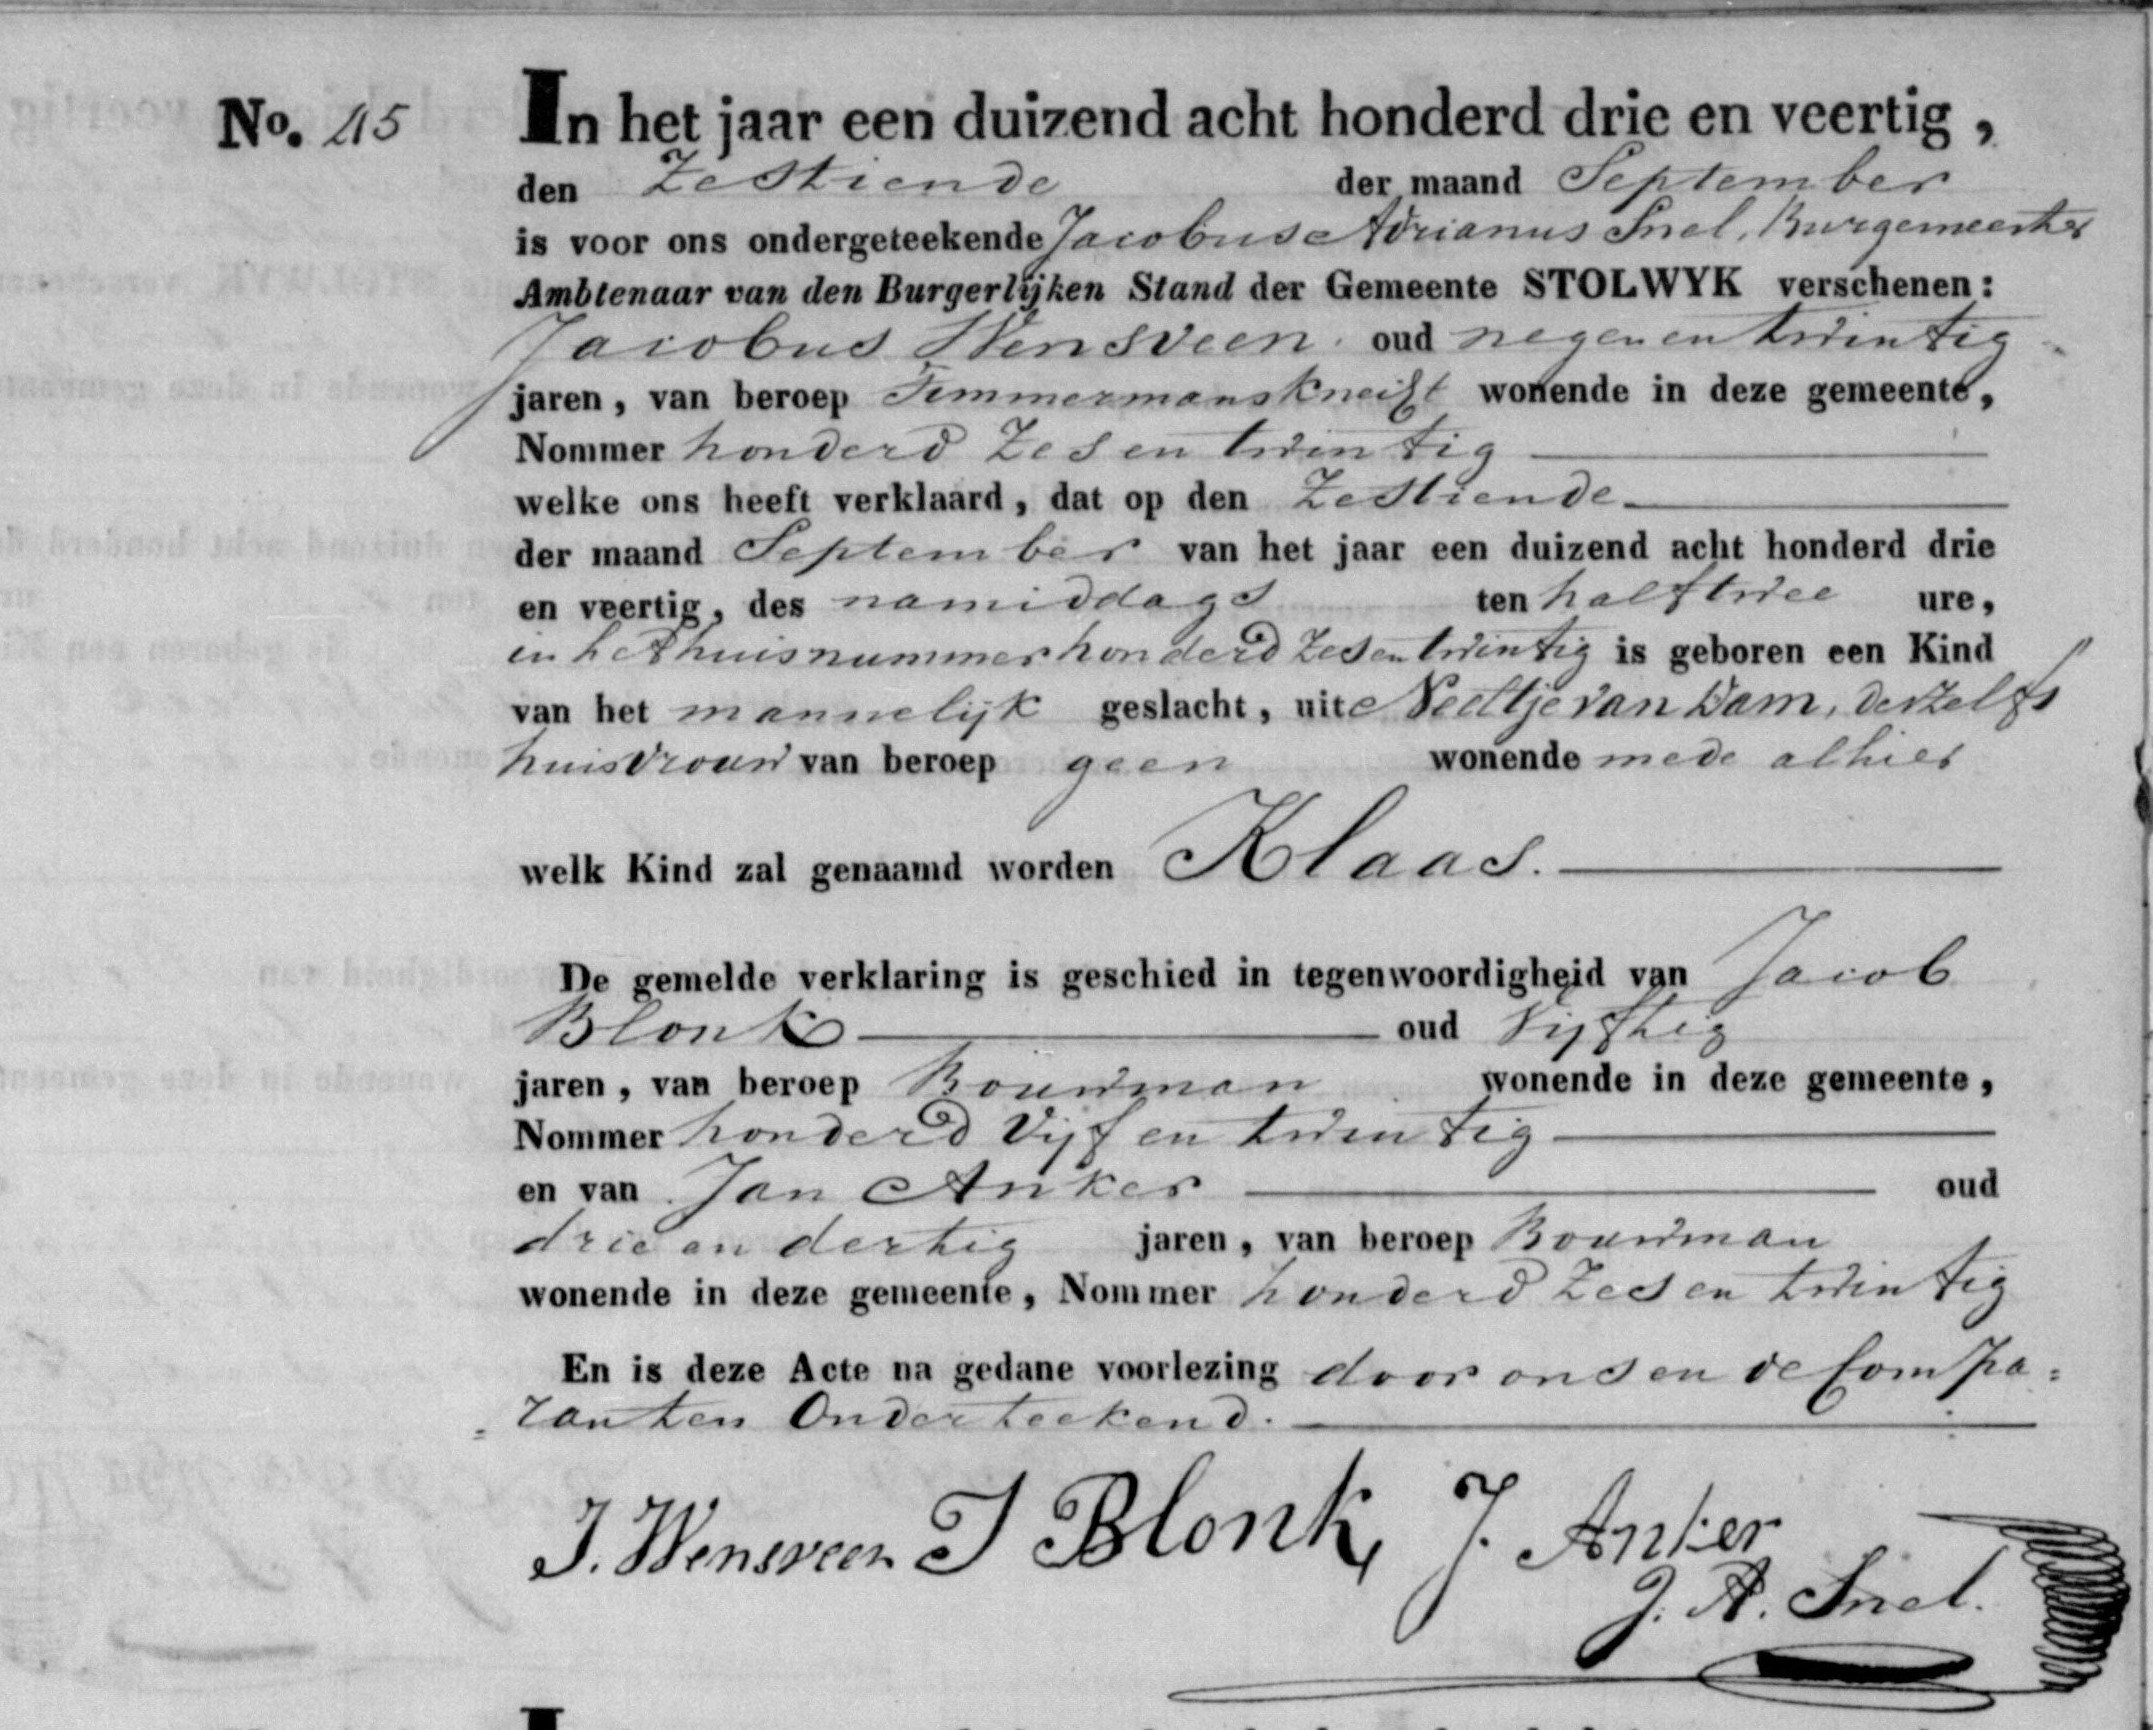 No. 45
In het jaar een duizend acht honderd drie en veertig,
den Zestiende der maand September
is voor ons ondergeteekende Jacobus Adrianus Snel, Burgemeester
Ambtenaar van den Burgerlijken Stand der Gemeente STOLWYK verschenen:
Jacobus Wensveen oud negen en twintig
jaren, van beroep Timmermansknegt wonende in deze gemeente,
Nommer honderd Zes en twintig
welke ons heeft verklaard, dat op den Zestiende
der maand September van het jaar een duizend acht honderd drie
en veertig, des namiddags ten half twee ure,
in het huis nummer honderd Zes en twintig is geboren een Kind
van het mannelijk geslacht, uit Neeltje van Dam, deszelfs
huisvrouw van beroep geen wonende mede alhier
welk Kind zal genaamd worden Klaas.
De gemelde verklaring is geschied in tegenwoordigheid van Jacob
Blonk oud Vijftig
jaren, van beroep Bouwman wonende in deze gemeente,
Nommer honderd Vijf en twintig
en van Jan Anker oud
drie en dertig jaren, van beroep Bouwman
wonende in deze gemeente, Nommer honderd Zes en twintig
En is deze Acte na gedane voorlezing door ons en de Compa=
=ranten Onderteekend.
J. Wensveen J Blonk J. Anker
J. A. Snel.